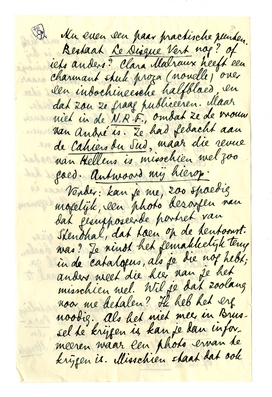 Nu even een paar practische punten.
Bestaat Le Disque Vert nog? of
iets anders? Clara Malraux heeft een
charmant stuk proza (novelle) over
een indochineesche halfbloed, en
dat zou ze graag publiceeren. Maar
niet in de N.R.F., omdat ze de vrouw
van André is. Ze had gedacht aan
de Cahiers du Sud, maar die revue
van Hellens is misschien wel zoo
goed. Antwoord mij hierop.
Verder: kan je me, zoo spoedig
mogelijk, een photo bezorgen van
dat gesupposeerde portret van
Stendhal, dat toen op de tentoonst:
was? Je vindt het gemakkelijk terug
in de catalogus, als je die nog hebt;
anders weet die hier van je het
misschien wel. Wil je dat zoolang
voor me betalen? Ik heb het erg
noodig. Als het niet meer in Brus-
sel te krijgen is kan je dan infor-
meeren waar een photo ervan te
krijgen is. Misschien staat dat ook